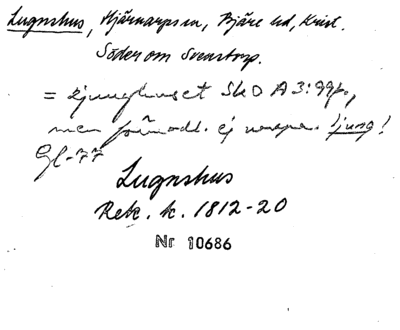 Lugnshus, Hjärnarps sn, Bjäre hd, Krist.
Söder om Svenstorp.
= Ljunghuset SkO A3:99f.,
men förmodl. ej urspr. ljung!
Gl-77
Lugnshus
Rek. k. 1812-20
Nr 10686